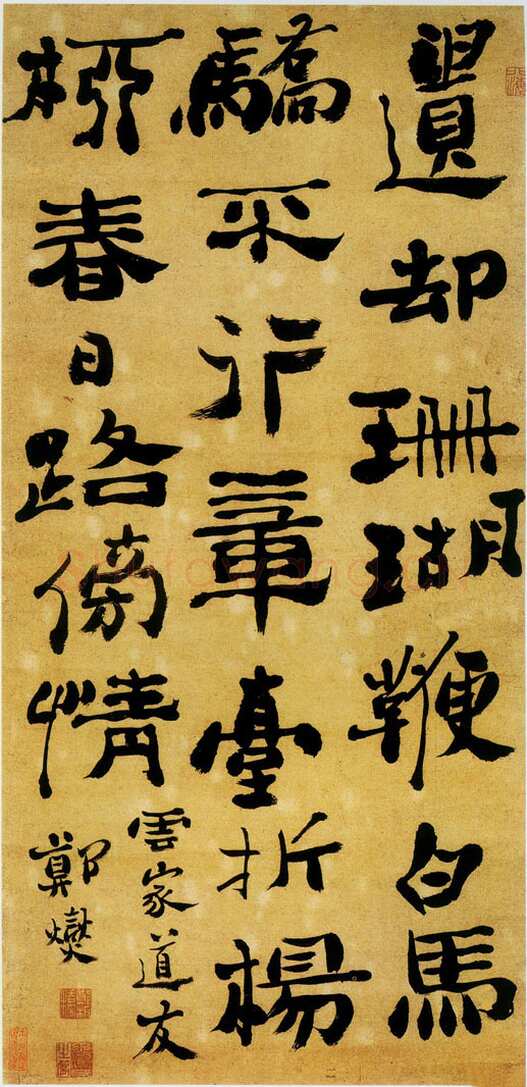 遺却珊瑚鞭白馬
驕不行章臺折楊
桺春日路傍情
雲家道友
鄭燮
shufawang.cn